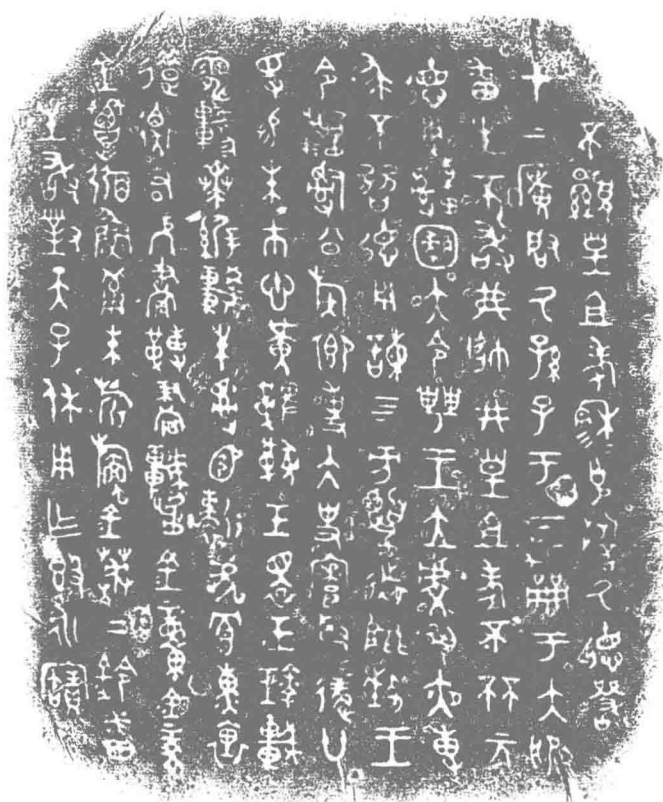 不顯皇且考穆穆克誓氒德嚴
才上廣啟氒孫子于下于大服
番生不敢弗帥井皇且考不杯元
德用大令甹王立虔夙夜尃
求不朁德用諫四方遠能王
令𤔲公族卿事大史寮取廿
寽易朱巿悤黃鞞玉睘玉瑹車
電軫較朱靳虎冟熏裏
衡右厄畫畫金童金豙
金簟弼魚葡朱旂金芫二鈴番
生敢對天子休用乍簋永寶